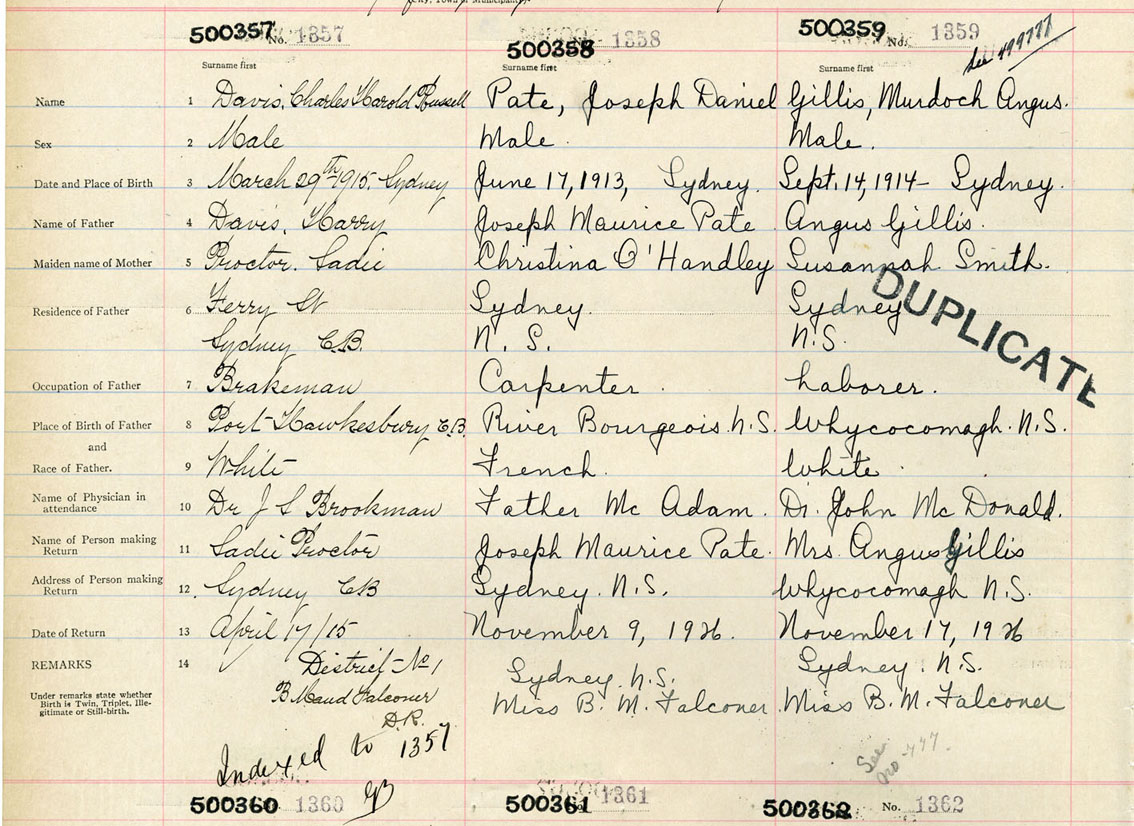 (City, Town or Municipality)
500357 No. 1357 500358 1358 500359 No. 1359 See 499777
Surname first Surname first Surname first
Name 1 Davis, Charles Harold Russell Pate, Joseph Daniel Gillis, Murdoch Angus.
Sex 2 Male Male. Male.
Date and Place of Birth 3 March 29th 1915. Sydney June 17, 1913, Sydney. Sept. 14, 1914 - Sydney.
Name of Father 4 Davis, Harry Joseph Maurice Pate Angus Gillis.
Maiden name of Mother 5 Proctor. Sadie Christina O'Handley Susannah Smith.
Residence of Father 6 Ferry St Sydney. Sydney
Sydney C.B. N. S. N.S.
DUPLICATE
Occupation of Father 7 Brakeman Carpenter. Laborer.
Place of Birth of Father 8 Port Hawkesbury C.B. River Bourgeois. N.S. Whycocomagh. N.S.
and
Race of Father. 9 White French. White
Name of Physician in
attendance 10 Dr J S Brookman Father Mc Adam. Dr. John Mc Donald.
Name of Person making
Return 11 Sadie Proctor Joseph Maurice Pate. Mrs. Angus Gillis
Address of Person making
Return 12. Sydney CB Sydney. N.S. Whycocomagh N.S.
Date of Return 13 April 17/15 November 9, 1926. November 17, 1926
REMARKS 14 District No 1 Sydney. N.S. Sydney. N.S.
Under remarks state whether
Birth is Twin, Triplet, Ille-
gitimate or Still-birth.
B Maud Falconer Miss B. M. Falconer. Miss B. M. Falconer
D.R.
Indexed to 1357
See
no 777.
500360 1360 500361 1361 500362 No. 1362